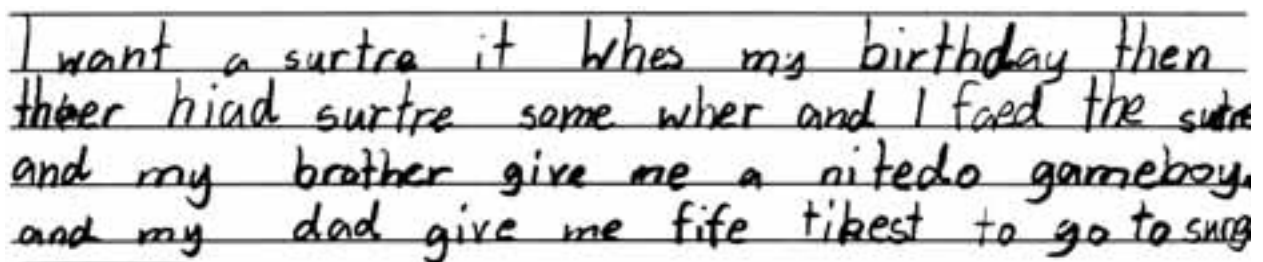 I want a surtre it Whes my birthday then
theer hiad surtre some wher and I faed the sutre
and my brother give me a nitedo gameboy.
and my dad give me fife tikest to go to